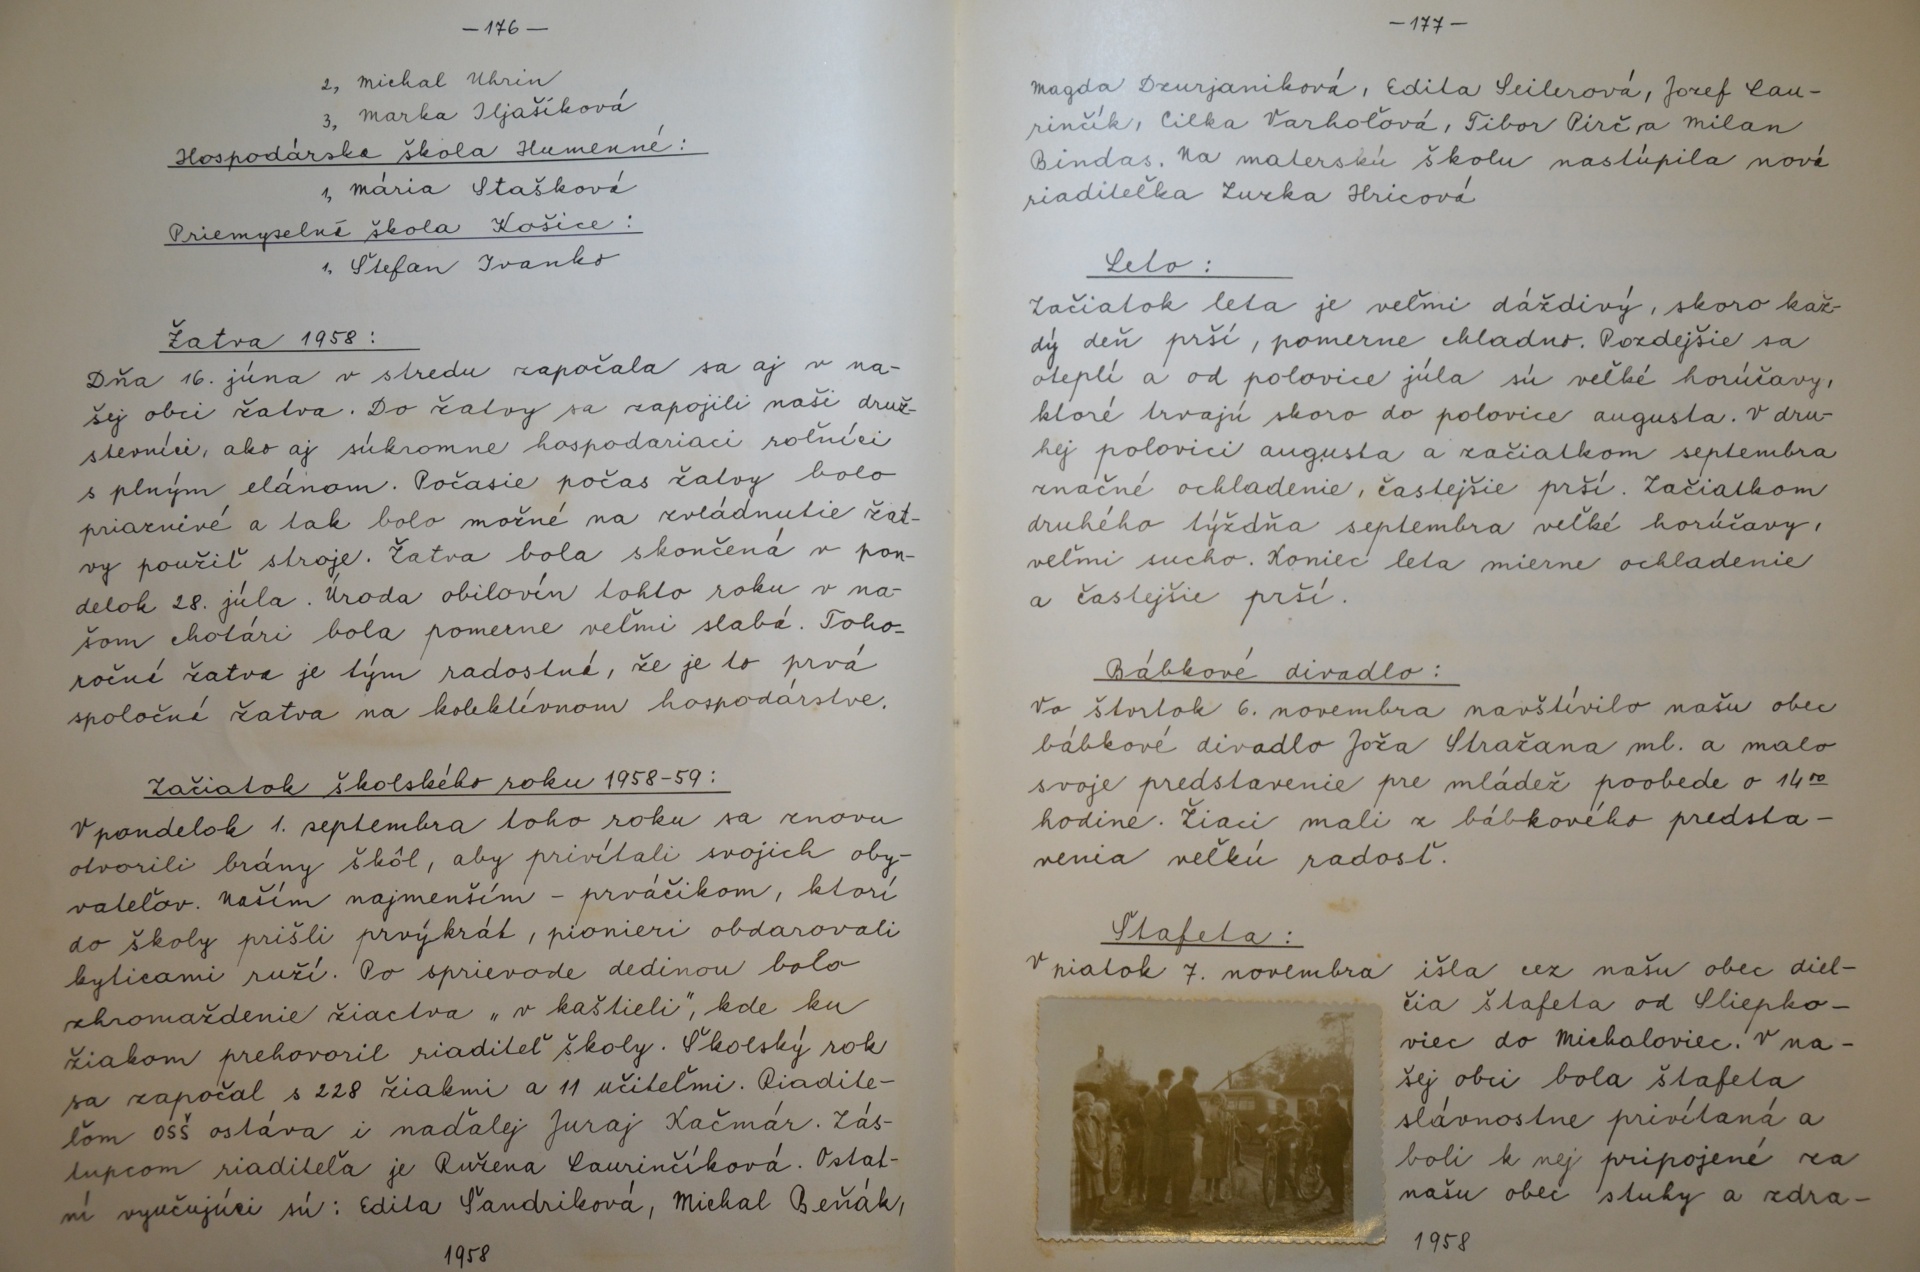 — 176 —
2, Michal Uhrin
3, Marka Iljašíková
Hospodárska škola Humenné:
1, Mária Stašková
Priemyselná škola Košice:
1, Štefan Ivanko
Žatva 1958:
Dňa 16. júna v stredu započala sa aj v na-
šej obci žatva. Do žatvy sa zapojili naši druž-
stevníci, ako aj súkromne hospodariaci roľníci
s plným elánom. Počasie počas žatvy bolo
priaznivé a tak bolo možné na zvládnutie žat-
vy použiť stroje. Žatva bola skončená v pon-
delok 28. júla. Úroda obilovín tohto roku v na-
šom chotári bola pomerne veľmi slabá. Toho-
ročná žatva je tým radostná, že je to prvá
spoločná žatva na kolektívnom hospodárstve.
Začiatok školského roku 1958-59:
V pondelok 1. septembra toho roku sa znovu
otvorili brány škôl, aby privítali svojich oby-
vateľov. Naším najmenším - prváčikom, ktorí
do školy prišli prvýkrát, pionieri obdarovali
kyticami ruží. Po sprievode dedinou bolo
zhromaždenie žiactva „v kaštieli", kde ku
žiakom prehovoril riaditeľ školy. Školský rok
sa započal s 228 žiakmi a 11 učiteľmi. Riadite-
ľom OSŠ ostáva i naďalej Juraj Kačmár. Zás-
tupcom riaditeľa je Ružena Laurinčíková. Ostat-
ní vyučujúci sú: Edita Šandriková, Michal Beňák,
1958
— 177 —
Magda Dzurjaniková, Edita Seilerová, Jozef Lau-
rinčík, Cilka Varhoľová, Tibor Pirč a Milan
Bindas. Na materskú školu nastúpila nová
riaditeľka Zuzka Hricová
Leto:
Začiatok leta je veľmi dáždivý, skoro kaž-
dý deň prší, pomerne chladno. Pozdejšie sa
oteplí a od polovice júla sú veľké horúčavy,
ktoré trvajú skoro do polovice augusta. V dru-
hej polovici augusta a začiatkom septembra
značné ochladenie, častejšie prší. Začiatkom
druhého týždňa septembra veľké horúčavy,
veľmi sucho. Koniec leta mierne ochladenie
a častejšie prší.
Bábkové divadlo:
Vo štvrtok 6. novembra navštívilo našu obec
bábkové divadlo Joža Stražana ml. a malo
svoje predstavenie pre mládež poobede o 14⁰⁰
hodine. Žiaci mali z bábkového predsta-
venia veľkú radosť.
Štafeta:
V piatok 7. novembra išla cez našu obec diel-
čia štafeta od Sliepko-
viec do Michaloviec. V na-
šej obci bola štafeta
slávnostne privítaná a
boli k nej pripojené za
našu obec stuhy a zdra-
1958